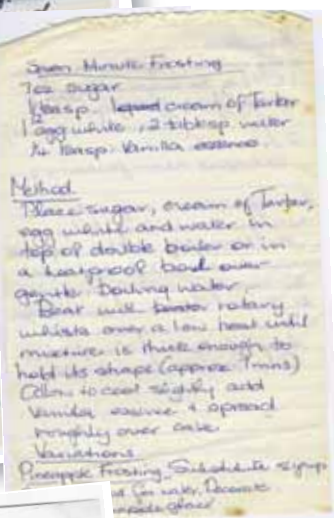 Seven Minute Frosting
7oz sugar
teasp. cream of Tartar
1 egg white, 2 tablesp water
1/4 teasp. Vanilla essence.
Method
Place sugar, cream of Tartar,
egg white and water in
top of double boiler or in
a heatproof bowl over
gentle boiling water.
Beat with rotary
whisk over a low heat until
mixture is thick enough to
hold its shape (approx 7mns)
Allow to cool slightly add
Vanilla essence + spread
roughly over cake.
Variations
Pineapple Frosting Substitute syrup
for water. Decorate